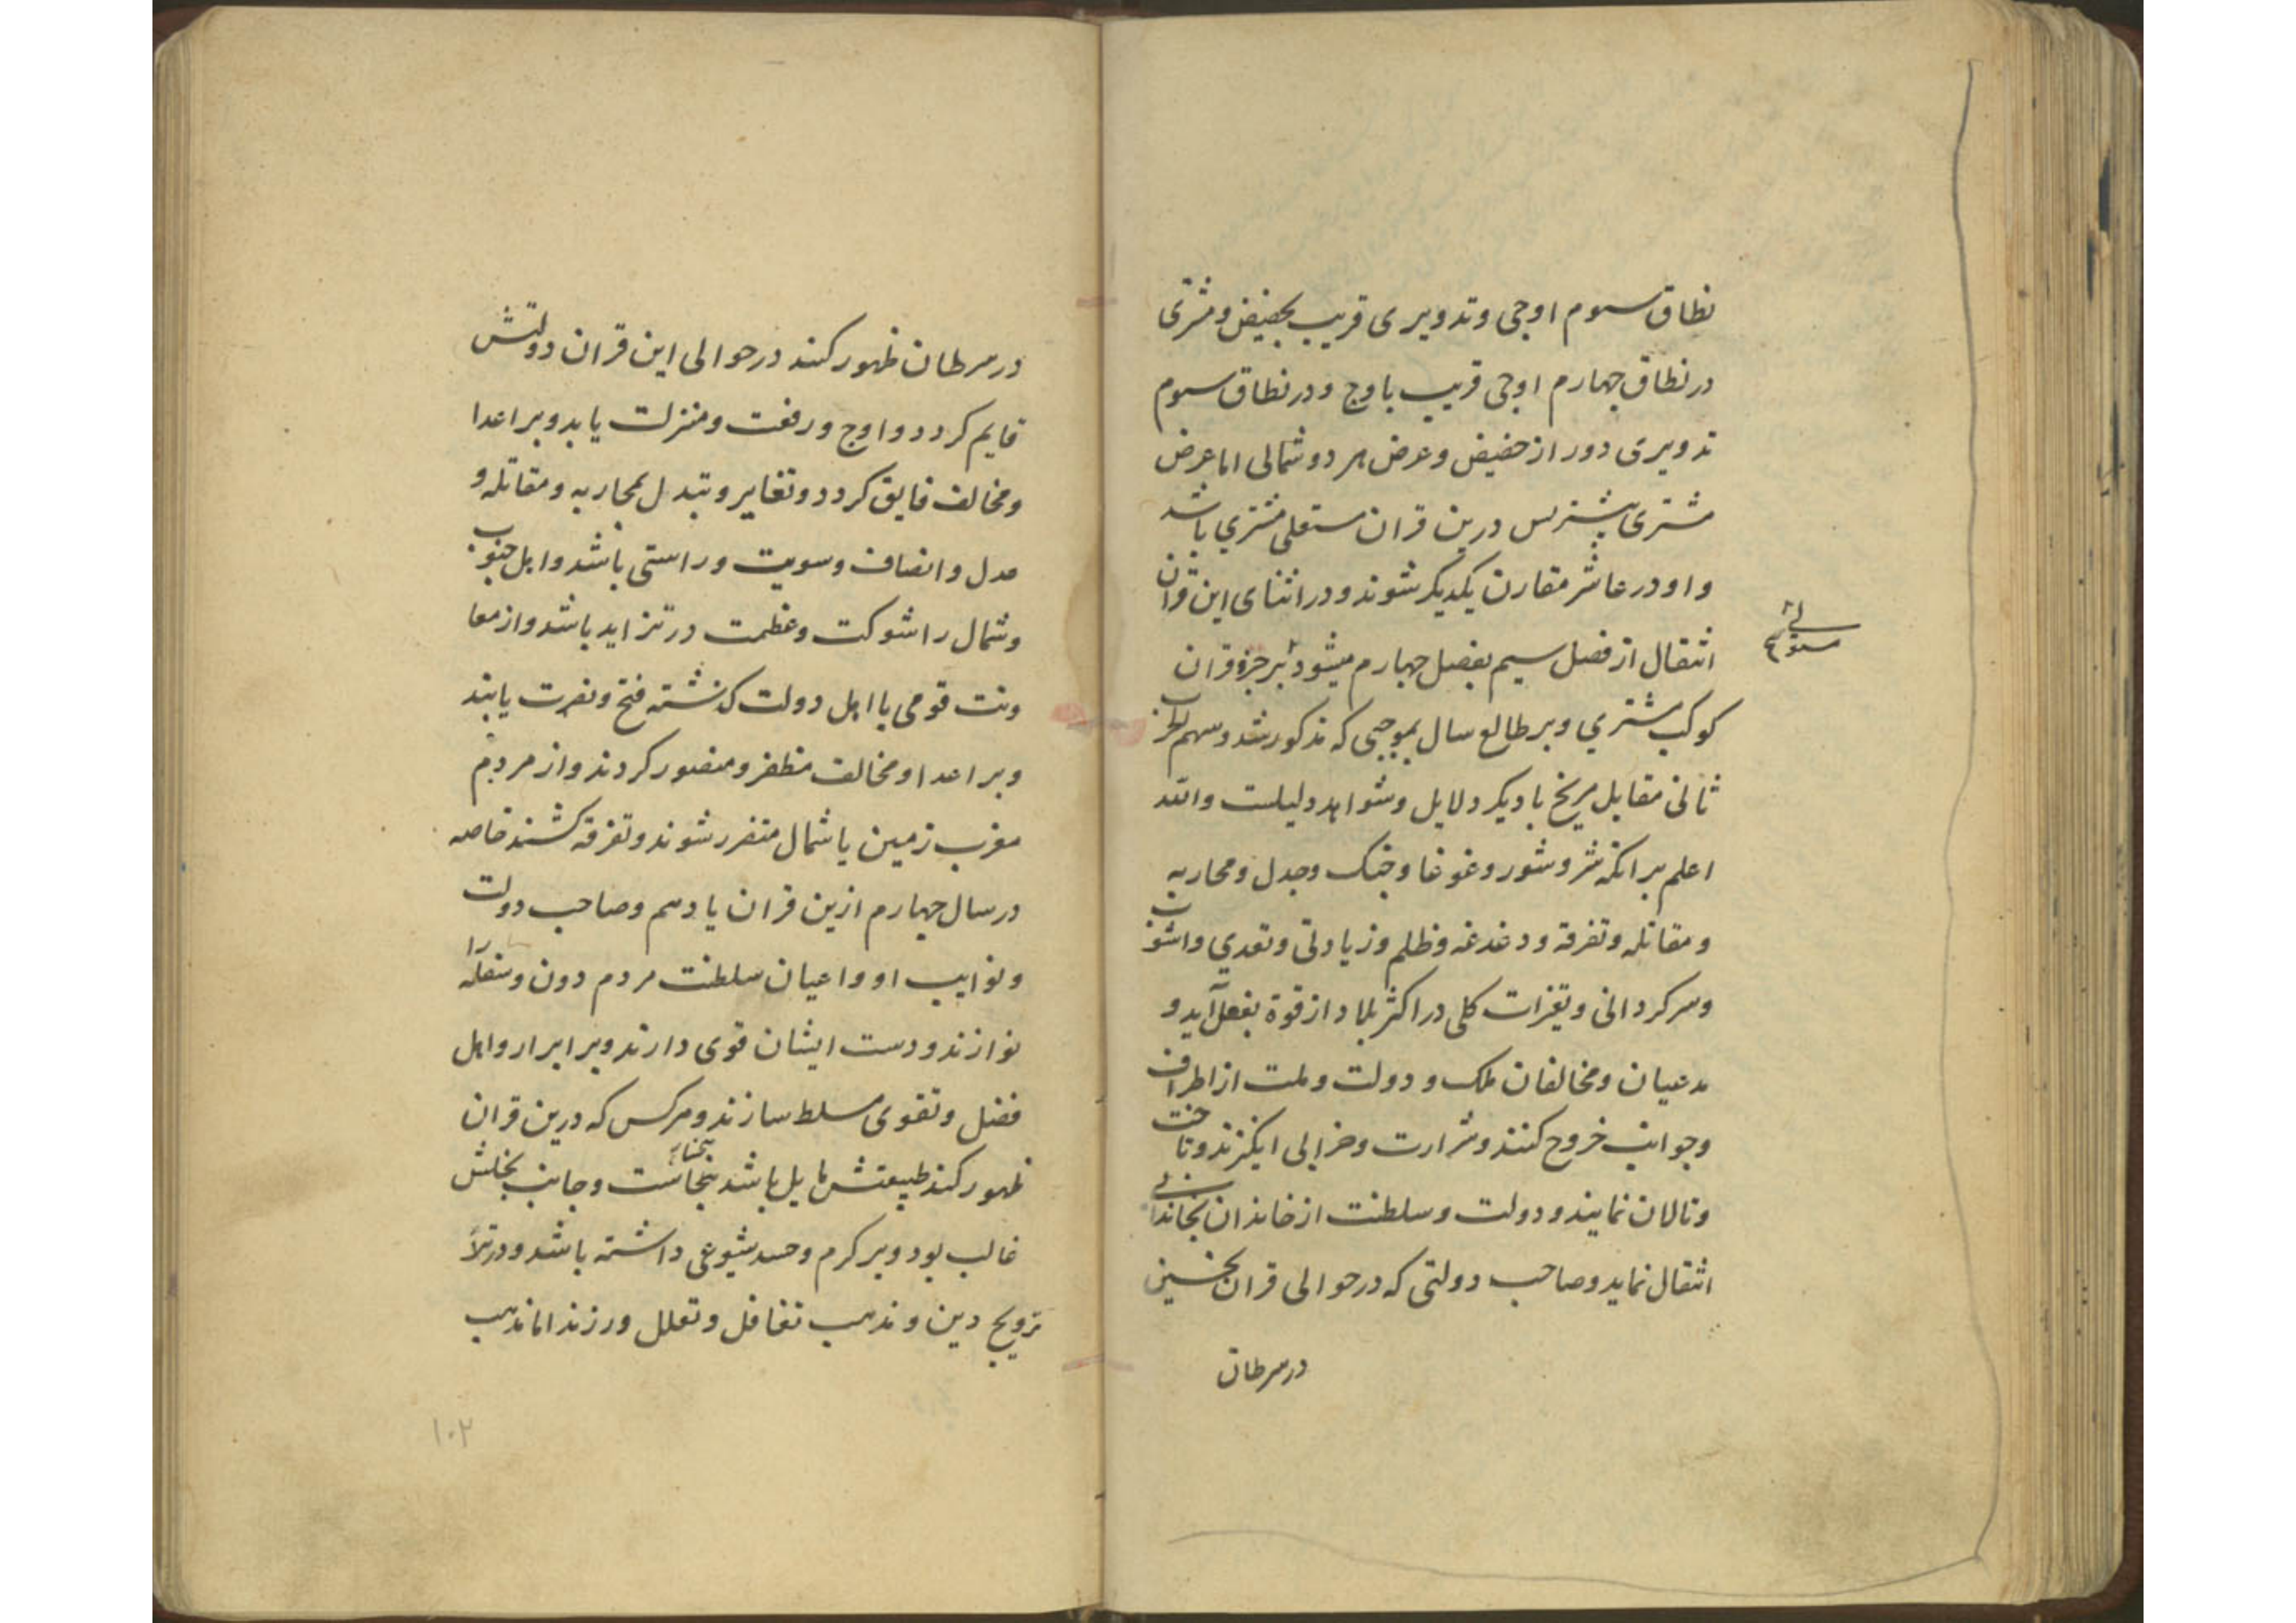 نطاق سوم اوجی و تدویری قریب بحضیض و مشتری
در نطاق چهارم اوجی قریب باوج و در نطاق سوم
تدویری دور از حضیض و عرض هر دو شمالی اما عرض
مشتری بیشتر پس درین قران مستعلی مشتری باشد
و او در عاشر مقارن یکدیگر شوند و در اثنای این قران
انتقال از فصل سیم بفصل چهارم میشود بر جزو قران
کوکب مشتری و بر طالع سال بموجبی که مذکور شد و سهم الحرب
ثانی مقابل مریخ با دیگر دلایل و شواهد دلیلست والله
اعلم بر انکه شر و شور و غوغا و جنک و جدل و محاربه
و مقاتله و تفرقه و دغدغه و ظلم و زیادتی و تعدی و اشوب
و سرکردانی و تغیرات کلی در اکثر بلاد از قوة بفعل آید و
مدعیان و مخالفان ملک و دولت و ملت از اطراف
و جوانب خروج کنند و شرارت و خرابی انکیزند و تاخت
و تالان نمایند و دولت و سلطنت از خاندان بخاندانی
انتقال نماید و صاحب دولتی که در حوالی قران نخستین
در سرطان
در سرطان ظهور کنند در حوالی این قران دولتش
قایم کردد و اوج و رفعت و منزلت یابد و بر اعدا
و مخالف فایق کردد و تغایر و تبدل بمحاربه و مقاتله و
عدل و انصاف و سویت و راستی باشد و اهل جنوب
و شمال را شوکت و عظمت در تزاید باشد و از معا
ونت قومی با اهل دولت کذشته فتح و نصرت یابند
و بر اعدا و مخالف مظفر و منصور کردند و از مردم
مغرب زمین یا شمال متضرر شوند و تفرقه کشند خاصه
در سال چهارم ازین قران یا دهم و صاحب دولت
و نوایب او و اعیان سلطنت مردم دون و سفله را
نوازند و دست ایشان قوی دارند و بر ابرار و اهل
فضل و تقوی مسلط سازند و هرکس که درین قران
ظهور کند طبیعتش مایل باشد بنجاست و جانب بخلش
غالب بود و بر کرم و حسد شیوعی داشته باشد و در
ترویج دین و مذهب تغافل و تعلل ورزند اما مذهب
۱۰۲